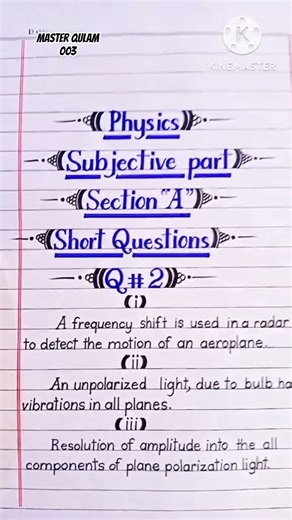 MASTER QULAM
003
KINEMASTER
Physics
Subjective part
Section "A"
Short Questions
Q#2
(i)
A frequency shift is used in a radar
to detect the motion of an aeroplane.
(ii)
An unpolarized light, due to bulb ha
vibrations in all planes.
(iii)
Resolution of amplitude into the all
components of plane polarization light.